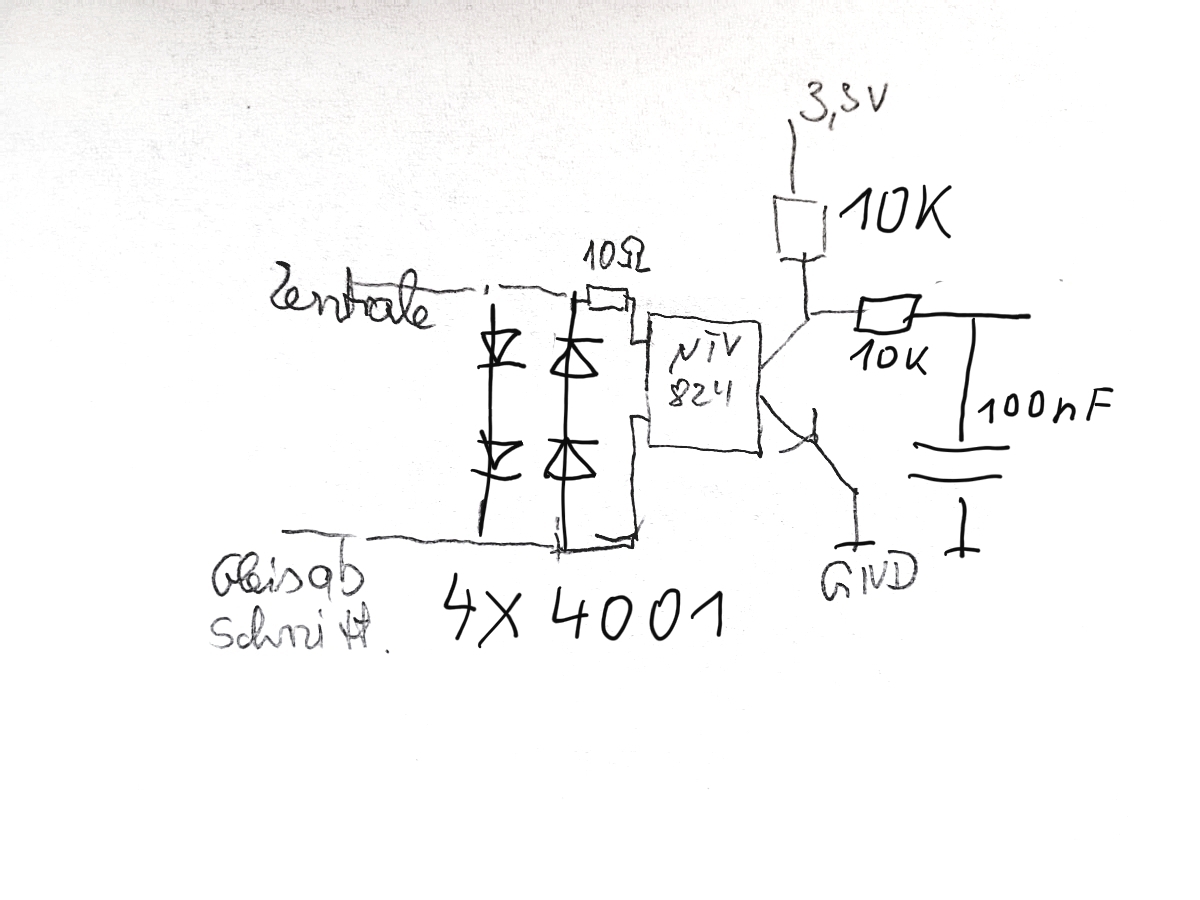 3,3V
10K
10Ω
Zentrale
NTV
824
10K
100nF
Gleisab
Schnitt.
GND
4X 4001